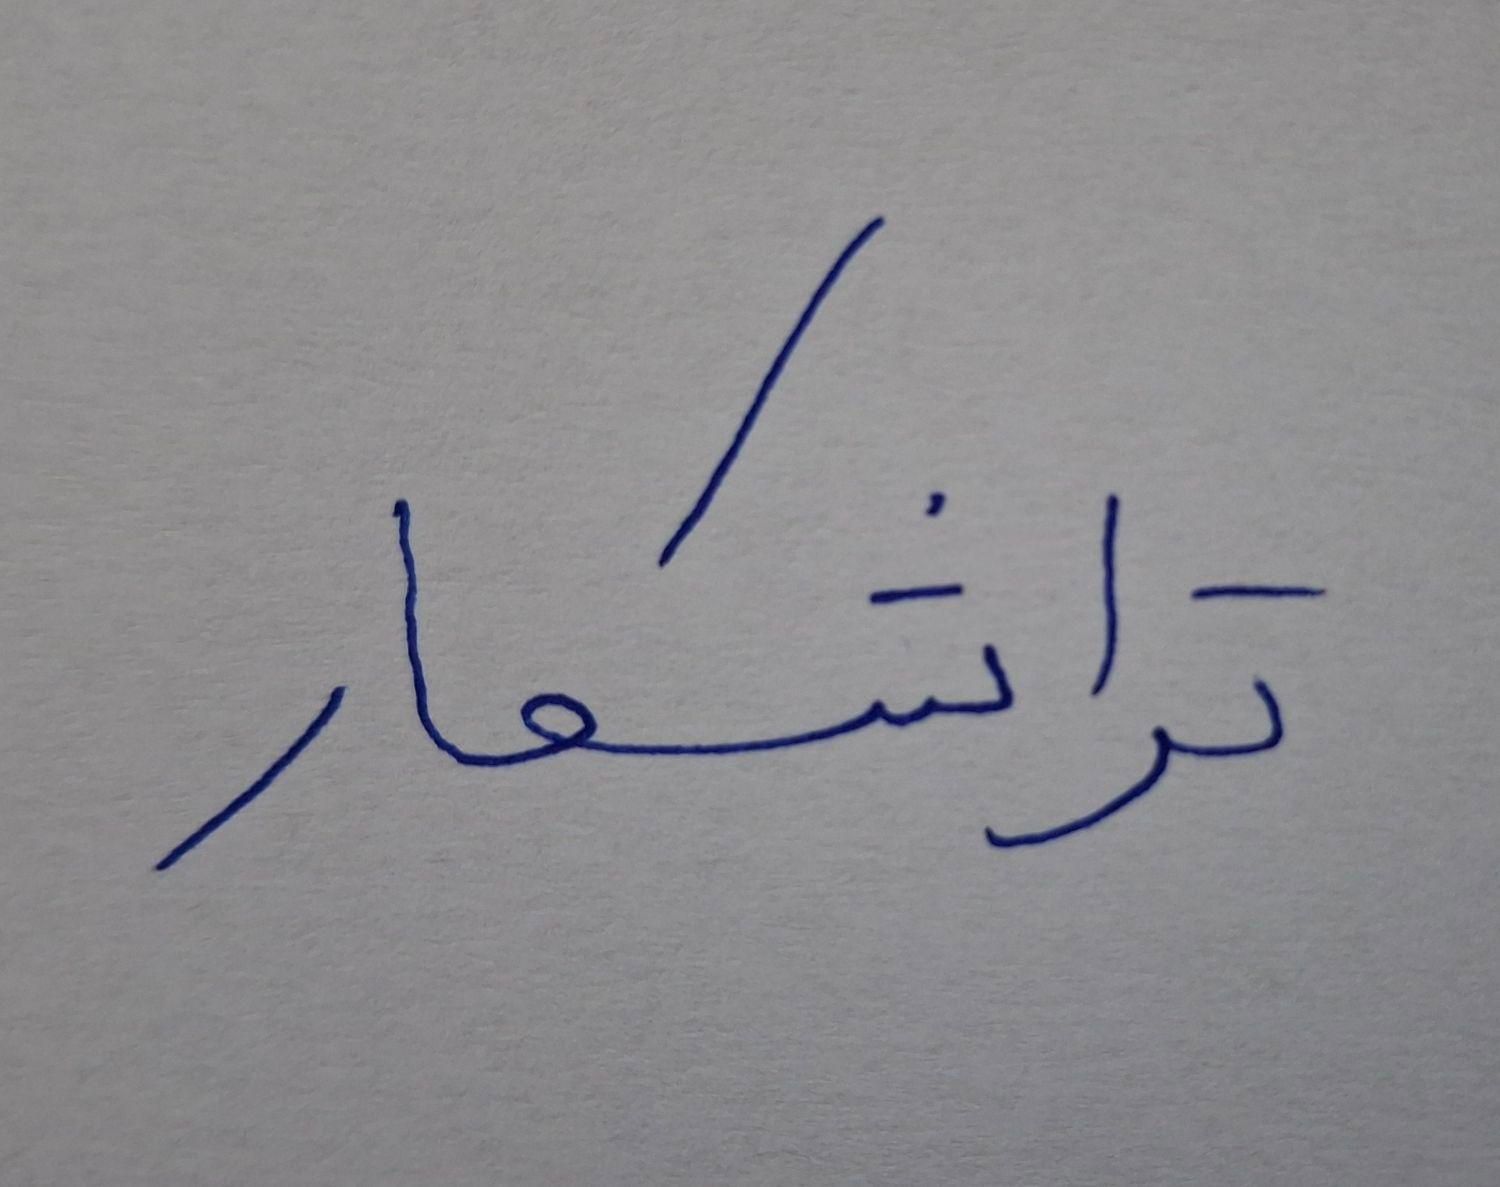 تراشکار